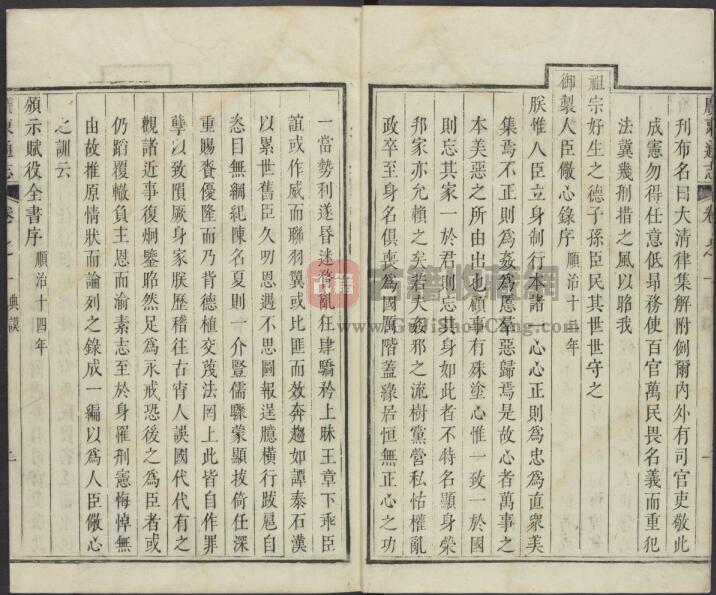 廣東通志
卷之一
一
刋布名曰大清律集解附例爾內外有司官吏敬此
成憲勿得任意低昻務使百官萬民畏名義而重犯
法冀幾刑措之風以昭我
祖宗好生之德子孫臣民其世世守之
御製人臣儆心錄序 順治十二年
朕惟人臣立身制行本諸一心心正則為忠為直衆美
集焉不正則為姦為慝羣惡歸焉是故心者萬事之
本美惡之所由出也顧事有殊塗心惟一致一於國
則忘其家一於君則忘其身如此者不特名顯身榮
邦家亦允賴之矣若大姦邪之流樹黨營私怙權亂
政卒至身名俱喪為國厲階葢緣居恒無正心之功
一當勢利遂昏迷瞀亂狂肆驕矜上昧王章下乖臣
誼或作威而聯羽翼或比匪而效奔趨如譚泰石漢
以累世舊臣久叨恩遇不思圖報逞臆橫行跋扈自
恣目無綱紀陳名夏則一介豎儒驟蒙顯拔倚任深
重賜賚優隆而乃背德植交蔑法罔上此皆自作罪
孽以致隕厥身家朕歷稽往古宵人誤國代代有之
觀諸近事復炯鑒昭然足為永戒恐後之為臣者或
仍蹈覆轍負主恩而渝素志至於身罹刑憲悔悼無
由故推原情狀而論列之錄成一編以為人臣儆心
之訓云
頒示賦役全書序 順治十四年
廣東通志
卷之一 典謨
二
古籍
古籍收藏网
www.GuJiShouCang.com